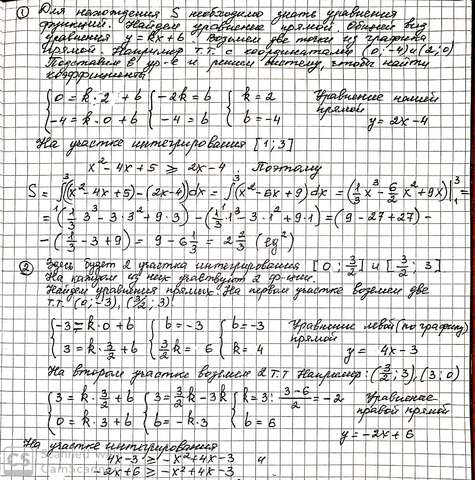 ① Для нахождения S необходимо знать уравнения
функций. Найдем уравнение прямой. Общий вид
уравнения y = kx + b. Возьмем две точки из графика
прямой. Например т.т. с координатами (0;-4) и (2;0)
Подставим в ур-е и решим систему, чтобы найти
коэффициенты
{ 0 = k·2 + b { -2k = b { k = 2 Уравнение нашей
{ -4 = k·0 + b { -4 = b { b = -4 прямой y = 2x - 4
На участке интегрирования [1;3]
x² - 4x + 5 ≥ 2x - 4. Поэтому
S = ∫₁³((x² - 4x + 5) - (2x - 4))dx = ∫₁³(x² - 6x + 9)dx = (1/3 x³ - 6/2 x² + 9x)|₁³ =
= (1/3·3³ - 3·3² + 9·3) - (1/3·1³ - 3·1² + 9·1) = (9 - 27 + 27) -
- (1/3 - 3 + 9) = 9 - 6 1/3 = 2 2/3 (ед²)
② Здесь будет 2 участка интегрирования [0; 3/2] и [3/2; 3]
На каждом из них участвуют 2 ф-ции.
Найдем уравнения прямых. На первом участке возьмем две
т.т. (0;-3), (3/2; 3)
{ -3 = k·0 + b { b = -3 { b = -3 Уравнение левой (по графику)
{ 3 = k·3/2 + b { 3/2 k = 6 { k = 4 прямой y = 4x - 3
На втором участке возьмем 2 т.т. Например: (3/2; 3), (3; 0)
{ 3 = k·3/2 + b { 3 = 3/2 k - 3k { k = 3 : (3-6)/2 = -2 Уравнение
{ 0 = k·3 + b { b = -k·3 { b = 6 правой прямой
y = -2x + 6
На участке интегрирования
4x - 3 ≥ -x² + 4x - 3 и
-2x + 6 ≥ -x² + 4x - 3
CS Scanned with
CamScanner